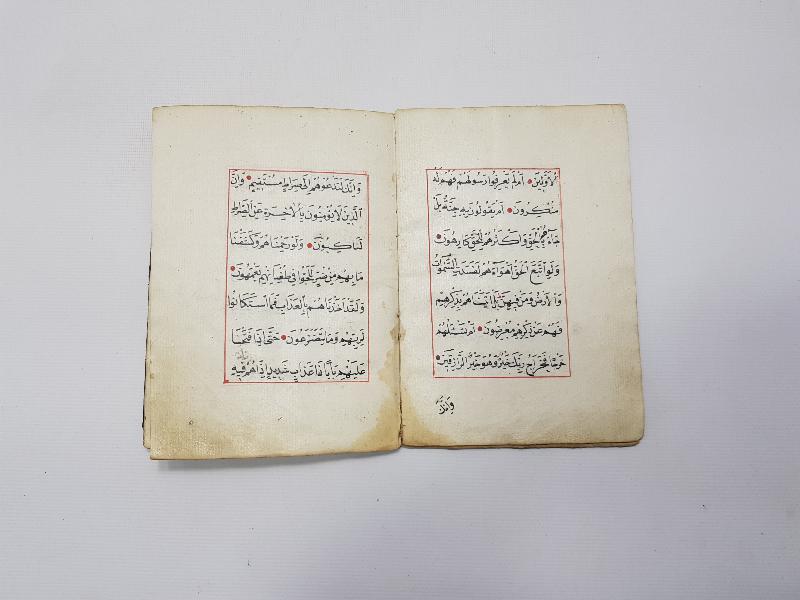 الْأَوَّلِينَ • أَمْ لَمْ يَعْرِفُوا رَسُولَهُمْ فَهُمْ لَهُ
مُنْكِرُونَ • أَمْ يَقُولُونَ بِهِ جِنَّةٌ بَلْ
جَاءَهُمْ بِالْحَقِّ وَأَكْثَرُهُمْ لِلْحَقِّ كَارِهُونَ •
وَلَوِ اتَّبَعَ الْحَقُّ أَهْوَاءَهُمْ لَفَسَدَتِ السَّمٰوَاتُ
وَالْأَرْضُ وَمَنْ فِيهِنَّ بَلْ أَتَيْنَاهُمْ بِذِكْرِهِمْ
فَهُمْ عَنْ ذِكْرِهِمْ مُعْرِضُونَ • أَمْ تَسْئَلُهُمْ
خَرْجًا فَخَرَاجُ رَبِّكَ خَيْرٌ وَهُوَ خَيْرُ الرَّازِقِينَ •
وَإِنَّكَ
وَإِنَّكَ لَتَدْعُوهُمْ إِلَى صِرَاطٍ مُسْتَقِيمٍ • وَإِنَّ
الَّذِينَ لَا يُؤْمِنُونَ بِالْآخِرَةِ عَنِ الصِّرَاطِ
لَنَاكِبُونَ • وَلَوْ رَحِمْنَاهُمْ وَكَشَفْنَا
مَا بِهِمْ مِنْ ضُرٍّ لَلَجُّوا فِي طُغْيَانِهِمْ يَعْمَهُونَ •
وَلَقَدْ أَخَذْنَاهُمْ بِالْعَذَابِ فَمَا اسْتَكَانُوا
لِرَبِّهِمْ وَمَا يَتَضَرَّعُونَ • حَتَّى إِذَا فَتَحْنَا
عَلَيْهِمْ بَابًا ذَا عَذَابٍ شَدِيدٍ إِذَا هُمْ فِيهِ